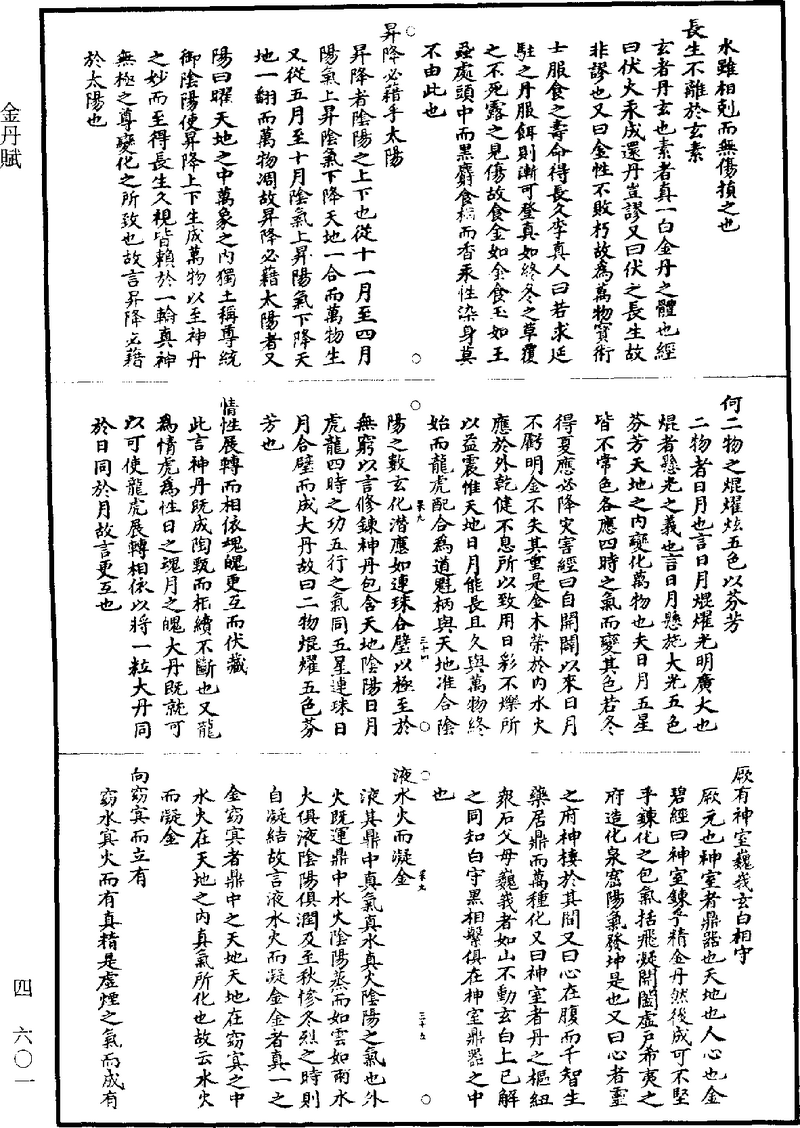 水雖相剋而無傷損之也
長生不離於玄素
玄者丹玄也素者真一白金丹之體也經
曰伏火汞成還丹豈謬又曰伏之長生故
非謬也又曰金性不敗朽故為萬物寶術
士服食之壽命得長久李真人曰若求延
駐之丹服餌則漸可登真如終冬之草覆
之不死露之見傷故食金如金食玉如玉
蝨處頭中而黑麝食栢而香汞性染身莫
不由此也
昇降必藉乎太陽
昇降者陰陽之上下也從十一月至四月
陽氣上昇陰氣下降天地一合而萬物生
又從五月至十月陰氣上昇陽氣下降天
地一翻而萬物凋故昇降必藉太陽者又
陽曰曜天地之中萬象之內獨土稱尊統
御陰陽使昇降上下生成萬物以至神丹
之妙而至得長生久視皆賴於一輪真神
無極之尊變化之所致也故言昇降必藉
於太陽也
何二物之焜燿炫五色以芬芳
二物者日月也言日月焜燿光明廣大也
焜者懸光之義也言日月懸施大光五色
芬芳天地之內變化萬物也夫日月五星
皆不常色各應四時之氣而變其色若冬
得夏應必降灾害經曰自開闢以來日月
不虧明金不失其重是金木榮於內水火
應於外乾健不息所以致用日彩不爍所
以益震惟天地日月能長且久與萬物終
始而龍虎配合為道魁柄與天地准合陰
陽之數玄化潜應如連珠合璧以極至於
無窮以言修鍊神丹包含天地陰陽日月
虎龍四時之功五行之氣同五星連珠日
月合壁而成大丹故曰二物焜燿五色芬
芳也
情性展轉而相依魂魄更互而伏藏
此言神丹既成陶甄而相續不斷也又龍
為情虎為性日之魂月之魄大丹既就可
以可使龍虎展轉相依以將一粒大丹同
於日同於月故言更互也
厥有神室巍峩玄白相守
厥元也神室者鼎器也天地也人心也金
碧經曰神室鍊乎精金丹然後成可不堅
乎鍊化之包氣括飛凝開闔虛戶希夷之
府造化泉窟陽氣發坤是也又曰心者靈
之府神棲於其間又曰心在腹而千智生
藥居鼎而萬種化又曰神室者丹之樞紐
衆石父母巍峩者如山不動玄白上已解
之同知白守黑相繫俱在神室鼎器之中
也
液水火而凝金
液其鼎中真氣真水真火陰陽之氣也外
火既運鼎中水火陰陽蒸而如雲如雨水
火俱液陰陽俱潤及至秋慘冬烈之時則
自凝結故言液水火而凝金金者真一之
金窈冥者鼎中之天地天地在窈冥之中
水火在天地之內真氣所化也故云水火
而凝金
向窈冥而立有
窈水冥火而有真精是虛煙之氣而成有
金丹賦
四 六〇一